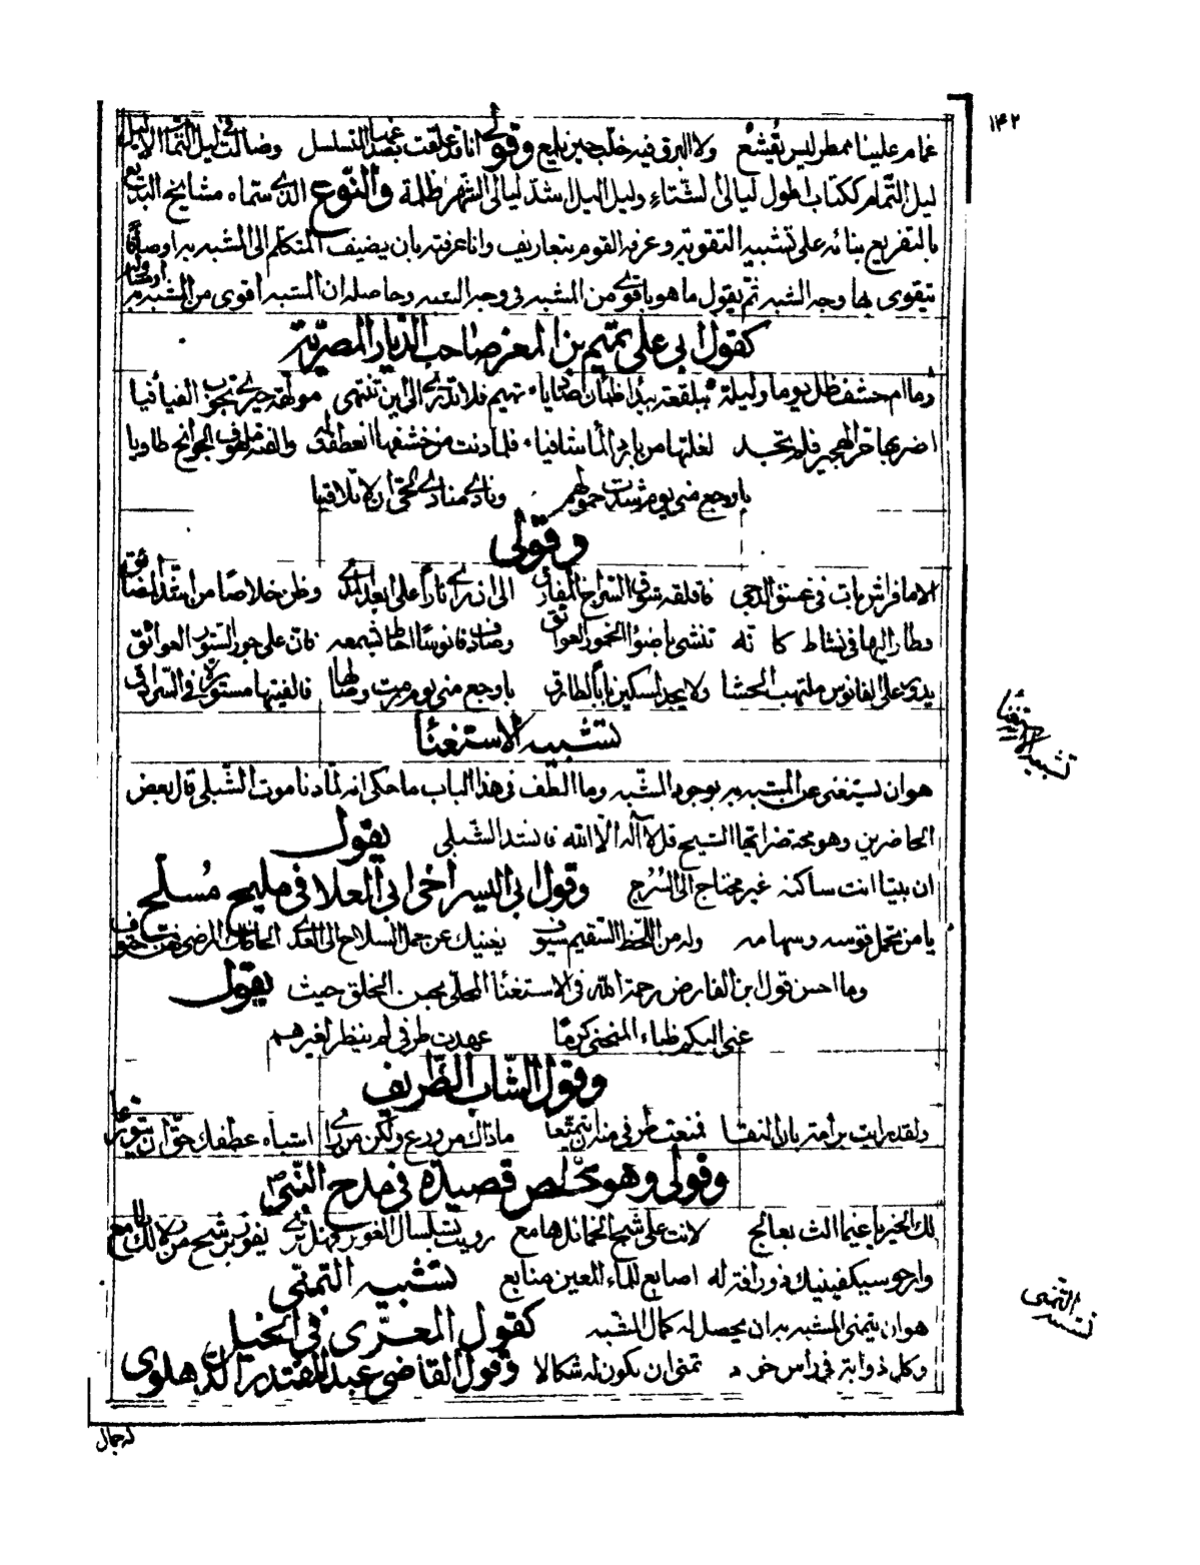 ١٤٢
غمام علينا ممطر ليس تقشع ولا البرق فيه خلب حين يلمع وقولي انا قد علقت بصدغها المتسلسل وضالت في ليل التمام الاليل
ليل التمام ككتاب اطول ليالي الشتاء وليل اليل اشد ليالي الشهر ظلمة والنوع الذي سماه مشايخ البديع
بالتفريع بنائه على تشبيه التقوية وعرفه القوم بتعاريف وانا عرفته بان يضيف المتكلم الى المشبه به اوصافا
يتقوى بها وجه الشبه ثم يقول ما هو باقوى من المشبه في وجه الشبه وحاصله ان المشبه اقوى من المشبه به
كقول ابي علي تميم بن المعز صاحب الديار المصرية
وما ام خشف ظل يوما وليلة ببلقعة بيداء ظمآن صاديا تهيم فلا تدري الى اين تنتهي مولهة حيرى تجوب الفيافيا
اضر بها حر الهجير فلم تجد لغلتها من بارد الماء شافيا فلما دنت من خشفها انعطفت له والفته ملهوف الجوانح طاويا
باوجع مني يوم شدت حمولهم ونادى منادي الحي ان لا تلاقيا
وقولي
الا ما فراش بات في غسق الدجى فاقلقه شوق السراج المفارق الى ان رأى نارا على ابعد المدى وظن خلاصا من اشد المضائق
وطار اليها في نشاط كانه تنشى باضواء الخمور العوائق وصادف فانوسا احاط بشمعه فان على جور الستور العوائق
يدور على الفانوس ملتهب الحشا ولا يجد المسكين بابا لطارق باوجع مني يوم رمت وصالها فالفيتها مستورة في السرادق
تشبيه الاستغنأ
هو ان يستغنى عن المشبه به بوجود المشبه وما الطف في هذا الباب ما حكى انه لما دنا موت الشبلي قال بعض
الحاضرين وهو محتضر ايها الشيخ قل لا اله الا الله فانشد الشبلي يقول
ان بيتا انت ساكنه غير محتاج الى السرج وقول ابي اليسر اخي ابي العلا في مليح مسلح
يا من يحمل قوسه وسهامه وله من اللحظ السقيم سيوف يغنيك عن حمل السلاح الى العدى
وما احسن قول ابن الفارض رحمة الله في الاستغنأ المحلى بحسن التخلق حيث يقول
عني اليكم ظباء المنحنى كرما عهدت طرفي لم ينظر لغيرهم
وقول الشاب الظريف
ولقد رايت برامة بان النقا فمنعت طرفي منه ان يتمتعا ما ذاك من ورع ولكن من رأى اشباه عطفك حق ان يتورعا
وقولي وهو مخلص قصيدة في مدح النبي ص
لك الخير يا غيما الث بعالج لانت على شيح الخمائل هامع
وارجو سيكفينيك في ورافة له اصابع للماء المعين منابع تشبيه التمني
هو ان يتمنى المشبه به ان يحصل له كمال المشبه كقول المعري في الخيل
وكل ذوابة في رأس خود تمنى ان يكون له شكالا وقول القاضي عبد المقتدر الدهلوي
تشبيه الاستغنا
تشبيه التمني
له جمال